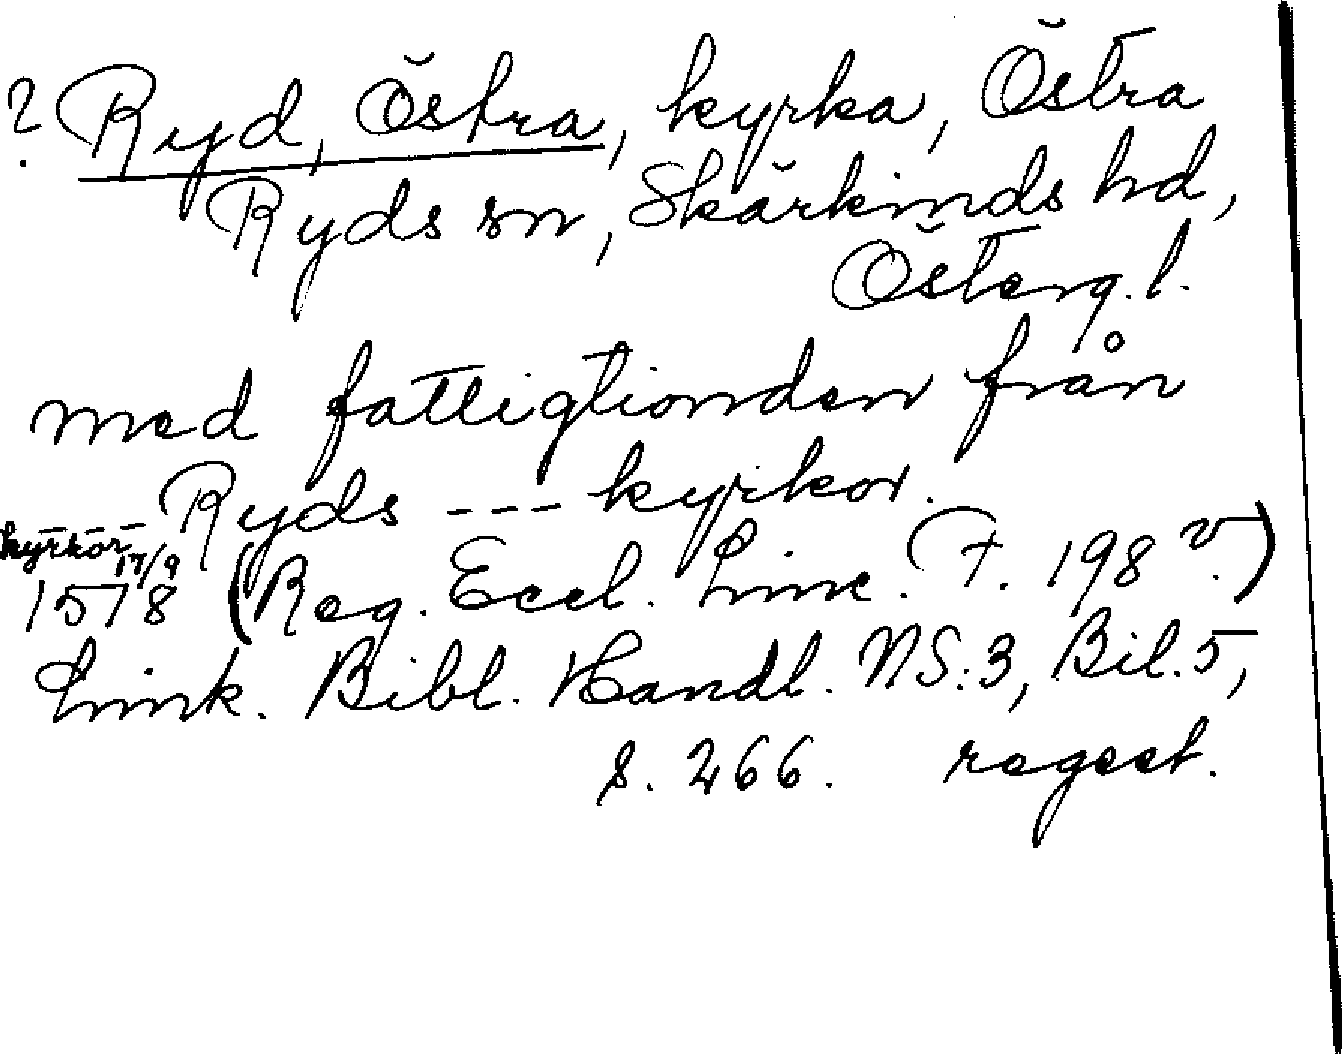 ? Ryd, Östra, kyrka, Östra
Ryds sn, Skärkinds hd,
Österg. l.
med fattigtionden från
Ryds --- kyrkor.
kyrkor 17/9
1578 (Reg. Eccl. Linc. F. 198 v.)
Link. Bibl. Handl. NS:3, Bil. 5,
s. 266. regest.